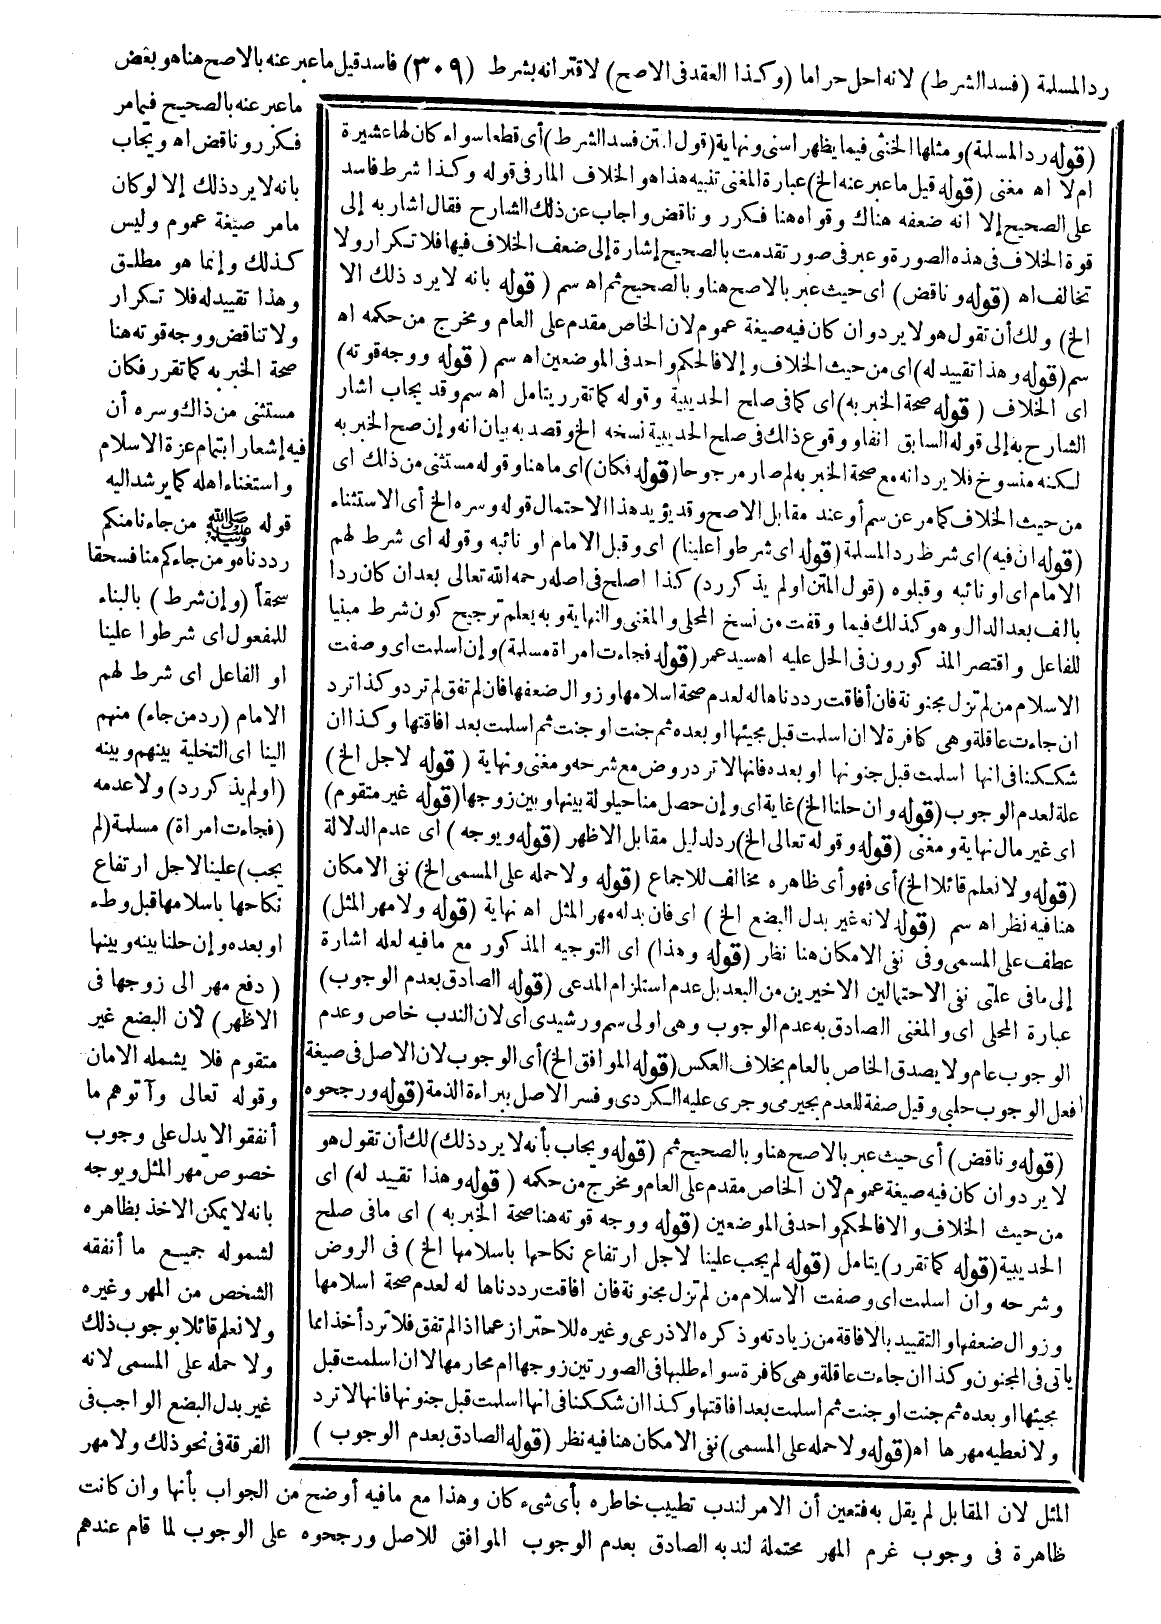 رد المسلمة (فسد الشرط) لانه احل حراما (وكذا العقد فى الاصح) لاقترانه بشرط (٣٠٩) فاسد قيل ما عبر عنه بالاصح هنا هو بعض
ما عبر عنه بالصحيح فيما مر
فكرر وناقض اه ويجاب
بانه لا يرد ذلك إلا لو كان
ما مر صيغة عموم وليس
كذلك وإنما هو مطلق
وهذا تقييد له فلا تكرار
ولا تناقض ووجه قوته هنا
صحة الخبر به كما تقرر فكان
مستثنى من ذاك وسره أن
فيه إشعارا بتمام عزة الاسلام
واستغناء اهله كما يرشد اليه
قوله ﷺ من جاءنا منكم
رددناه ومن جاءكم منا فسحقا
سحقاً (وإن شرط) بالبناء
للمفعول اى شرطوا علينا
او الفاعل اى شرط لهم
الامام (رد من جاء) منهم
الينا اى التخلية بينهم وبينه
(او لم يذكر رد) ولا عدمه
(فجاءت امرأة) مسلمة (لم
يجب) علينا لاجل ارتفاع
نكاحها باسلامها قبل وطء
او بعده وإن حلنا بينه وبينها
(دفع مهر الى زوجها فى
الاظهر) لأن البضع غير
متقوم فلا يشمله الامان
وقوله تعالى وآتوهم ما
أنفقوا لا يدل على وجوب
خصوص مهر المثل ويوجه
بانه لا يمكن الاخذ بظاهره
لشموله جميع ما أنفقه
الشخص من المهر وغيره
ولا نعلم قائلا بوجوب ذلك
ولا حمله على المسمى لانه
غير بدل البضع الواجب فى
الفرقة فى نحو ذلك ولا مهر
المثل لان المقابل لم يقل به فتعين أن الامر لندب تطييب خاطره بأى شىء كان وهذا مع ما فيه أوضح من الجواب بأنها وان كانت
ظاهرة فى وجوب غرم المهر محتملة لندبه الصادق بعدم الوجوب الموافق للاصل ورجحوه على الوجوب لما قام عندهم
(قوله رد المسلمة) ومثلها الخنثى فيما يظهر اسنى ونهاية (قول المتن فسد الشرط) أى قطعا سواء كان لها عشيرة
ام لا اه مغنى (قوله قيل ما عبر عنه الخ) عبارة المغنى تنبيه هذا هو الخلاف المار فى قوله وكذا شرط فاسد
على الصحيح إلا انه ضعفه هناك وقواه هنا فكرر وناقض واجاب عن ذلك الشارح فقال اشار به إلى
قوة الخلاف فى هذه الصورة وعبر فى صور تقدمت بالصحيح إشارة إلى ضعف الخلاف فيها فلا تكرار ولا
تخالف اه (قوله وناقض) اى حيث عبر بالاصح هنا وبالصحيح ثم اه سم (قوله بانه لا يرد ذلك الا
الخ) ولك أن تقول هو لا يرد وان كان فيه صيغة عموم لان الخاص مقدم على العام ومخرج من حكمه اه
سم (قوله وهذا تقييد له) اى من حيث الخلاف وإلا فالحكم واحد فى الموضعين اه سم (قوله ووجه قوته)
اى الخلاف (قوله صحة الخبر به) اى كما فى صلح الحديبية وقوله كما تقرر يتامل اه سم وقد يجاب اشار
الشارح به إلى قوله السابق انفا ووقوع ذلك فى صلح الحديبية نسخه الخ وقصد به بيان انه وإن صح الخبر به
لكنه منسوخ فلا يرد انه مع صحة الخبر به لم صار مرجوحا (قوله فكان) اى ما هنا وقوله مستثنى من ذلك اى
من حيث الخلاف كما مر عن سم أو عند مقابل الاصح وقد يؤيد هذا الاحتمال قوله وسره الخ أى الاستثناء
(قوله ان فيه) اى شرط رد المسلمة (قوله اى شرطوا علينا) اى وقبل الامام او نائبه وقوله اى شرط لهم
الامام اى او نائبه وقبلوه (قول المتن او لم يذكر رد) كذا اصلح فى اصله رحمه الله تعالى بعد ان كان ردا
بالف بعد الدال وهو كذلك فيما وقفت من نسخ المحلى والمغنى والنهاية وبه يعلم ترجيح كون شرط مبنيا
للفاعل واقتصر المذكورون فى الحل عليه اه سيد عمر (قوله فجاءت امراة مسلمة) وإن اسلمت اى وصفت
الاسلام من لم تزل مجنونة فان أفاقت رددناها له لعدم صحة اسلامها وزوال ضعفها فان لم تفق لم ترد وكذا ترد
ان جاءت عاقلة وهى كافرة لا ان اسلمت قبل مجيئها او بعده ثم جنت او جنت ثم اسلمت بعد افاقتها وكذا ان
شككنا فى انها اسلمت قبل جنونها او بعده فانها لا ترد روض مع شرحه ومغنى ونهاية (قوله لاجل الخ)
علة لعدم الوجوب (قوله وان حلنا الخ) غاية اى وإن حصل منا حيلولة بينها وبين زوجها (قوله غير متقوم)
اى غير مال نهاية ومغنى (قوله وقوله تعالى الخ) رد لدليل مقابل الاظهر (قوله ويوجه) اى عدم الدلالة
(قوله ولا نعلم قائلا الخ) أى فهو أى ظاهره مخالف للاجماع (قوله ولا حمله على المسمى الخ) نفى الامكان
هنا فيه نظر اه سم (قوله لانه غير بدل البضع الخ) اى فان بدله مهر المثل اه نهاية (قوله ولا مهر المثل)
عطف على المسمى وفى نفى الامكان هنا نظر (قوله وهذا) اى التوجيه المذكور مع ما فيه لعله اشارة
إلى ما فى علتى نفى الاحتمالين الاخيرين من البعد بل عدم استلزام المدعى (قوله الصادق بعدم الوجوب)
عبارة المحلى اى والمغنى الصادق به عدم الوجوب وهى اولى سم ورشيدى أى لان الندب خاص وعدم
الوجوب عام ولا يصدق الخاص بالعام بخلاف العكس (قوله الموافق الخ) أى الوجوب لان الاصل فى صيغة
افعل الوجوب حلبى وقيل صفة للعدم بجيرمى وجرى عليه الكردى وفسر الاصل ببراءة الذمة (قوله ورجحوه
(قوله وناقض) أى حيث عبر بالاصح هنا وبالصحيح ثم (قوله ويجاب بأنه لا يرد ذلك) لك أن تقول هو
لا يرد وان كان فيه صيغة عموم لأن الخاص مقدم على العام ومخرج من حكمه (قوله وهذا تقييد له) اى
من حيث الخلاف والا فالحكم واحد فى الموضعين (قوله ووجه قوته هنا صحة الخبر به) اى ما فى صلح
الحديبية (قوله كما تقرر) يتامل (قوله لم يجب علينا لاجل ارتفاع نكاحها باسلامها الخ) فى الروض
وشرحه وان اسلمت اى وصفت الاسلام من لم تزل مجنونة فان افاقت رددناها له لعدم صحة اسلامها
وزوال ضعفها والتقييد بالافاقة من زيادته وذكره الاذرعى وغيره للاحتراز عما اذا لم تفق فلا ترد أخذا مما
ياتى فى المجنون وكذا ان جاءت عاقلة وهى كافرة سواء طلبها فى الصورتين زوجها ام محارمها لا ان اسلمت قبل
مجيئها او بعده ثم جنت او جنت ثم اسلمت بعد افاقتها وكذا ان شككنا فى انها اسلمت قبل جنونها فانها لا ترد
ولا نعطيه مهرها اه (قوله ولا حمله على المسمى) نفى الامكان هنا فيه نظر (قوله الصادق بعدم الوجوب)